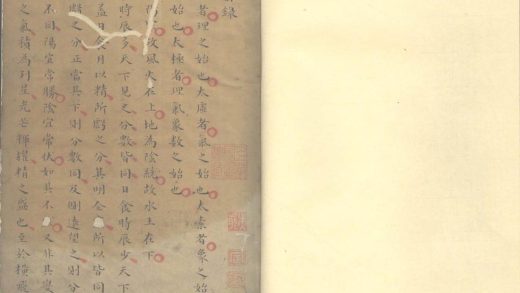 錄
者理之始也太虛者氣之始也太素者象之始
始也太極者理氣象數之始也
故風火在上地為陰統故水土在下
時辰多天下見之分數皆同日食時辰少天下
益日食月以精所虧之分其明全所以皆同
虧之分正當其下則分數同及則遠望之則分
不同陽宜常勝陰宜常伏如其不又非其變
之氣積為列星光芒輝耀精之盛也至於橫